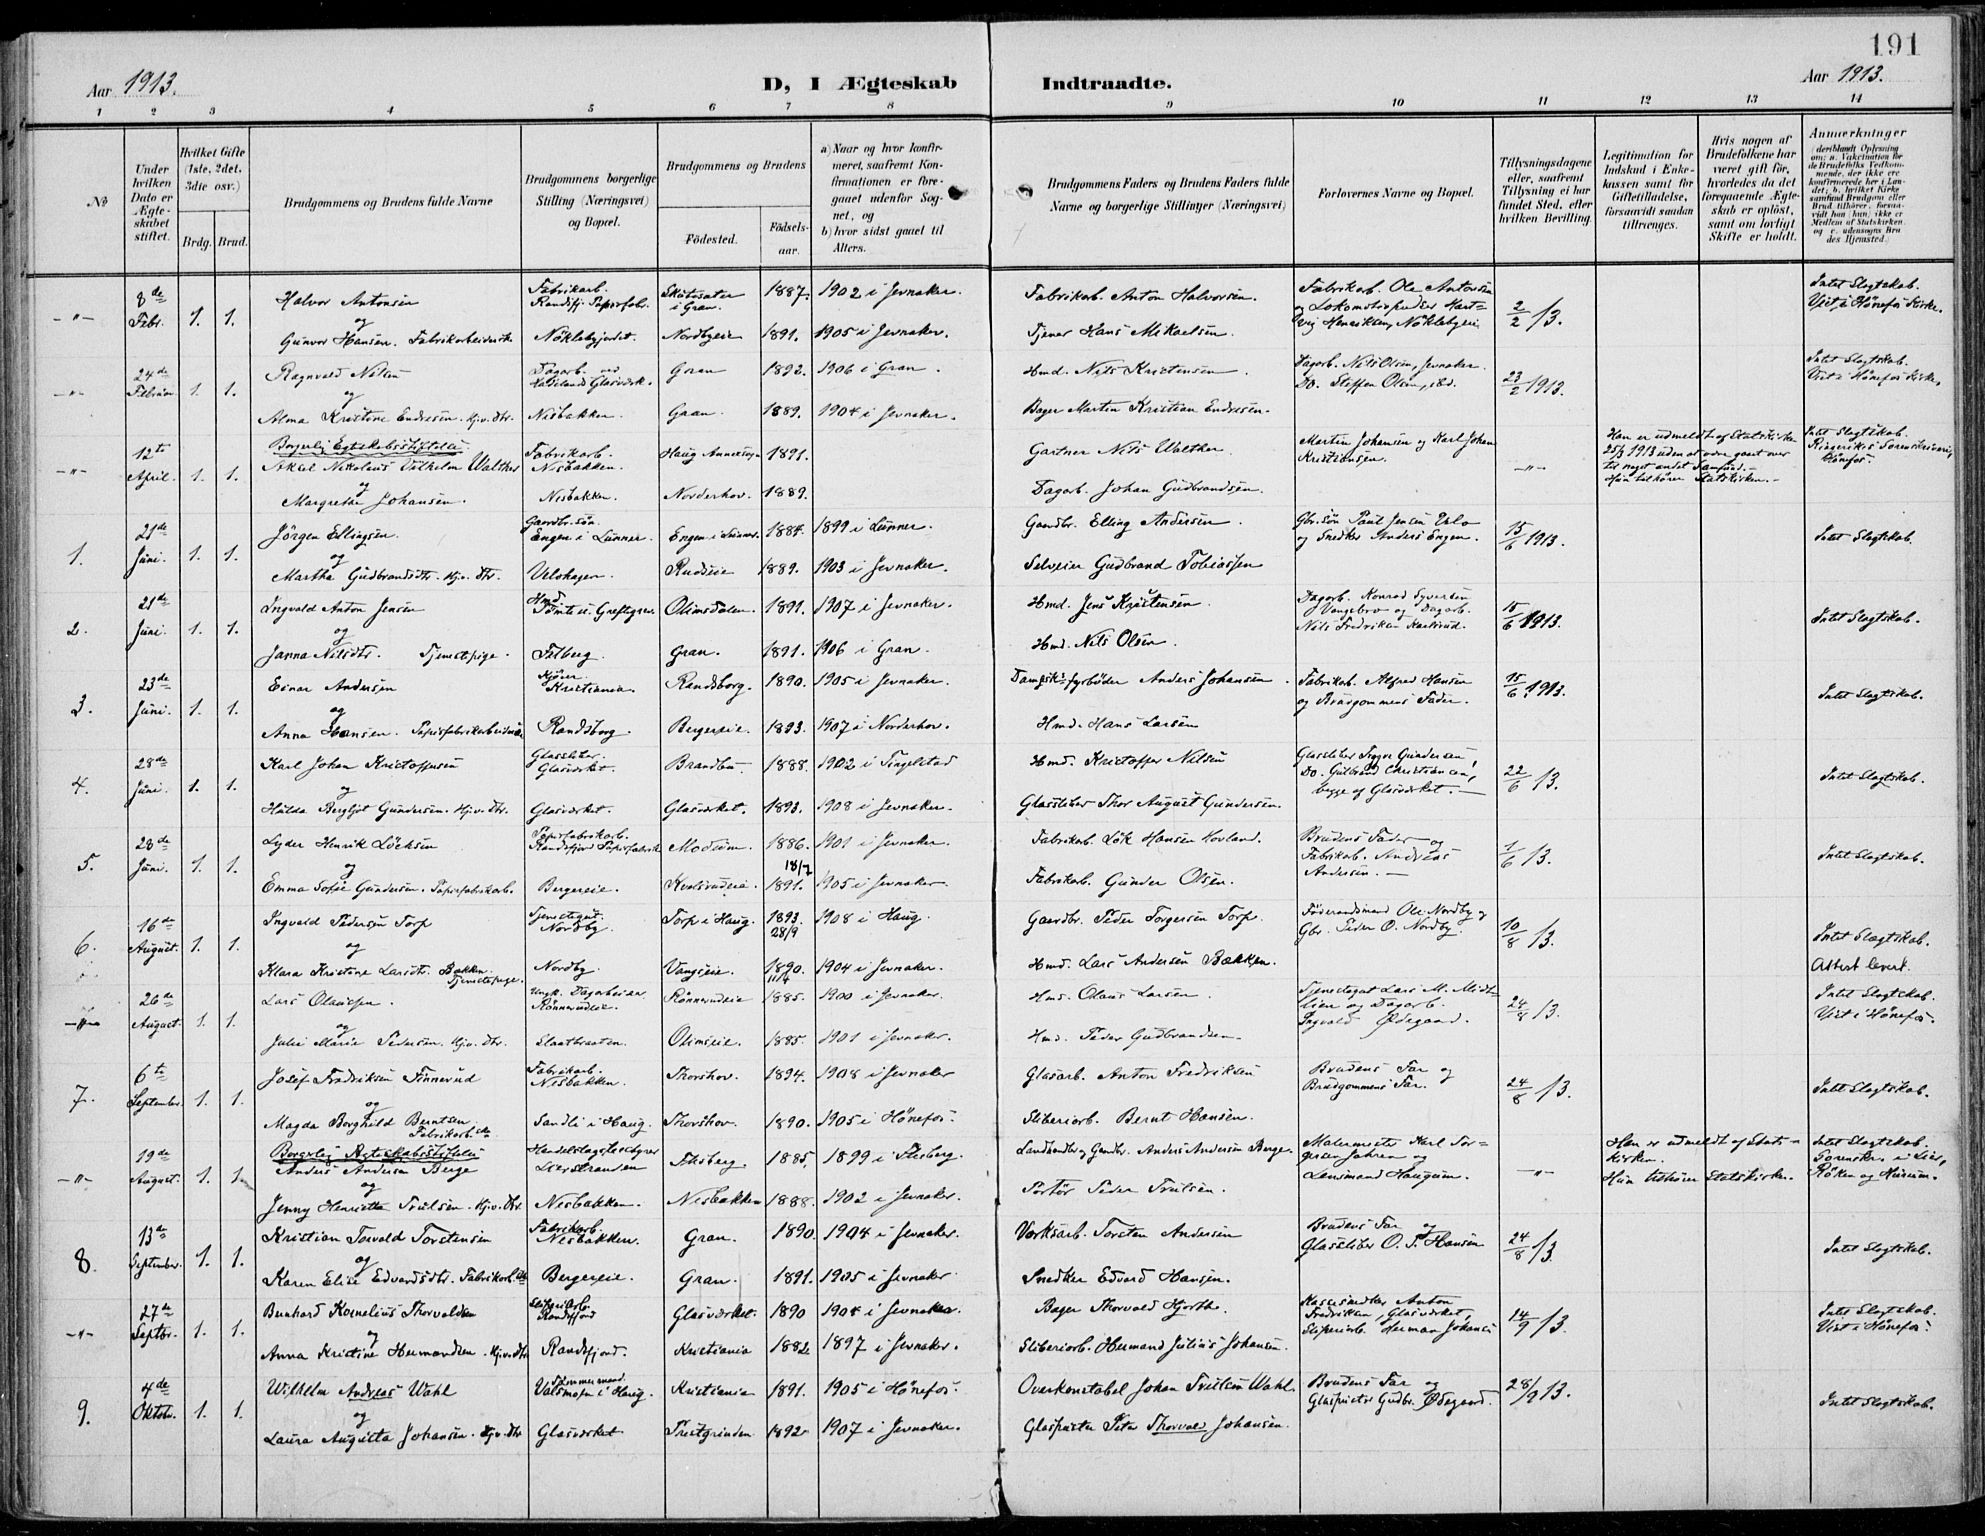 191
Aar 1913.
D, I Ægteskab Indtraadte.
Aar 1913.
1 2 3 4 5 6 7 8 9 10 11 12 13 14
No
Under hvilken Dato er Ægteskabet stiftet.
Hvilket Gifte (1ste, 2det, 3die osv.)
Brdg. Brud.
Brudgommens og Brudens fulde Navne
Brudgommens borgerlige Stilling (Næringsvei) og Bopæl.
Brudgommens og Brudens
Fødested.
Fødselsaar.
a) Naar og hvor konfirmeret, saafremt Konfirmationen er foregaaet udenfor Sognet, og
b) hvor sidst gaaet til Alters.
Brudgommens Faders og Brudens Faders fulde Navne og borgerlige Stillinger (Næringsvei)
Forlovernes Navne og Bopæl.
Tillysningsdagene eller, saafremt Tillysning ei har fundet Sted, efter hvilken Bevilling.
Legitimation for Indskud i Enkekassen samt for Giftetilladelse, forsaavidt saadan tiltrænges.
Hvis nogen af Brudefolkene har været gift før, hvorledes da det foregaaende Ægteskab er opløst, samt om lovligt Skifte er holdt.
Anmerkninger
(deriblandt Oplysning om: a. Vakcination for de Brudefolks Vedkommende, der ikke ere konfirmerede her i Landet; b. hvilket Kirkesamfund Brudgom eller Brud tilhører, forsaavidt han (hun) ikke er Medlem af Statskirken, og c. udensogns Brudes Hjemsted.)
-"- 8de Febr. 1. 1. Halvor Antonsen Fabrikarb. Randsfj. Papirfabr. i Gran. 1887. 1902 i Jevnaker. Fabrikarb. Anton Halvorsen. Fabrikarb. Ole Antonsen og Lokomotivpudser Hartvig Henriksen, Nöklebyeie 2/2 13. Intet Slegtskab. Viet i Hönefos Kirke.
og
Gunvor Hansen. Fabrikarbeiderske Nöklebyjordet. Nordbyeie 1891. 1905 i Jevnaker. Tjener Hans Mikaelsen.
-"- 24de Februar 1. 1. Ragnvald Nilsen Dagarb. ved Hadelands Glasværk. Gran 1892. 1906 i Gran. Hmd. Nils Kristensen. Dagarb. Nils Olsen, Jevnaker. Do. Steffen Olsen, ibd. 23/2 1913. Intet Slegtskab. Viet i Hönefos Kirke.
og
Alma Kristine Endresen. Hjv. Dtr. Nesbakken. Gran. 1889. 1904 i Jevnaker. Bager Martin Kristian Endresen.
Borgerlig Egteskabsstiftelse
-"- 12te April. 1. 1. Aksel Nikolaus Vilhelm Walther Fabrikarb. Nesbakken. Haug Annexsogn 1891. Gartner Nils Walther. Martin Johansen og Karl Johan Kristiansen. -"- Han er udmeldt af Statskirken 25/3 1913 uden at være gaaet over til noget andet Samfund.- Hun tilhører Statskirken.- Intet Slegtskab. Ringerikes Sorenskriveri, Hönefos.
og
Margrethe Johansen. Nesbakken. Norderhov. 1889. Dagarb. Johan Gudbrandsen.
1. 21de Juni. 1. 1. Jörgen Ellingsen. Gaardbr.sön Engen i Lunner. Engen i Lunner. 1884. 1899 i Lunner. Gaardbr. Elling Andersen. Gbr.sön Paul Jensen Velo og Snedker Anders Engen. 15/6 1913. Intet Slegtskab.
og
Martha Gudbrandsdtr. Hjv. Dtr. Velohagen. Rudseie 1889. 1903 i Jevnaker. Selveier Gudbrand Tobiassen
2. 21de Juni. 1. 1. Ingvald Anton Jensen Hmd. Tömte u. Greftegrev. Olimsdalen. 1891. 1907 i Jevnaker. Hmd. Jens Kristensen. Dagarb. Konrad Syversen Vangebro og Dagarb. Nils Fredriksen Karlsrud. 15/6 1913. Intet Slegtskab.
og
Janna Nilsdtr. Tjenestepige. Felberg. Gran. 1891. 1906 i Gran. Hmd. Nils Olsen
3. 23de Juni. 1. 1. Einar Andersen Kjörer. Kristiania. Randsborg. 1890. 1905 i Jevnaker. Dampsk.fyrböder Anders Johansen. Fabrikarb. Alfred Hansen og Brudgommens Fader. 15/6 1913. Intet Slegtskab.
og
Anna Hansen. Papirfabrikarbeiderske Randsborg. Bergereie. 1893. 1907 i Norderhov. Hmd. Hans Larsen
4. 28de Juni. 1. 1. Karl Johan Kristoffersen Glassliber Glasværket. Brandbu. 1888. 1902 i Tingelstad Hmd. Kristoffer Nilsen Glassliber Sigge Gundersen, Do. Gulbrand Christiansen, begge af Glasværket. - 22/6 13. Intet Slegtskab.
og
Hulda Bergljot Gundersen. Hjv. Dtr. Glasværket. Glasværket. 1893. 1908 i Jevnaker. Glassliber Thor August Gundersen.
5. 28de Juni. 1. 1. Lyder Henrik Löchsen Papirfabrikarb. Randsfjord Papirfabrik Modum. 1886. 1901 i Jevnaker. Fabrikarb. Lök Hansen Hovland. Brudens Fader og Fabrikarb. Andreas Andersen. - 1/6 13. Intet Slegtskab.
og
Emma Sofie Gundersen. Papirfabrikarb. Bergereie. Kvelsrudeie. 18/7 1891. 1905 i Jevnaker. Fabrikarb. Gunder Olsen.
6. 16de August. 1. 1. Ingvald Pedersen Torp Tjenestegut. Nordby. Torp i Haug. 1893. 28/9 1908 i Haug. Gaardbr. Peder Torgersen Torp. Föderaadsmand Ole Nordby og Gbr. Peder O. Nordby. 10/8 13. Intet Slægtskab. Attest levert.
og
Klara Kristine Larsdtr. Bakken. Tjenestepige. Nordby. Vangseie. 1890. 1904 i Jevnaker. Hmd. Lars Andersen Bakken.
-"- 26de August 1. 1. Lars Olaussen. Ungk. Dagarbeider Rönnerudeie. Rönnerudeie 1885. 1900 i Jevnaker. Hmd. Olaus Larsen. Tjenestegut Lars M. Midtlien og Dagarb. Ingvald Ødegaard. 24/8 13. Intet Slegtskab. Viet i Hönefos.
og
Julie Marie Pedersen. Hjv. Dtr. Slaatbraaten. Olimseie. 1885. 1901 i Jevnaker. Hmd. Peder Gudbrandsen.
7. 6te September. 1. 1. Josef Fredriksen Finnerud Fabrikarb. Nesbakken. Thorshov. 1894. 1908 i Jevnaker Glasarb. Anton Fredriksen Brudens Far og Brudgommens Far. 24/8 13. Intet Slegtskab.
og
Magda Borghild Berntsen Fabrikarb.ske Sandli i Haug. Thorshov. 1890. 1905 i Hönefos. Sliberiarb. Bernt Hansen.
Borgerlig Ægteskabsstiftelse
-"- 19de August. 1. 1. Anders Andersen Berge Handelslagsbestyrer Lierstranden Flesberg. 1885. 1899 i Flesberg. Landhandler og Gaardbr. Anders Andersen Berge. Malermester Karl Torgersen Jahren og Lensmand Haugum. -"- Han er udmeldt af Statskirken. Hun tilhörer Statskirken. Intet Slegtskab. Sorenskr. i Lier, Röken og Hurum.
og
Jenny Henriette Trulsen. Hjv. Dtr. Nesbakken. Nesbakken 1888. 1902 i Jevnaker. Portör Peder Trulsen.
8. 13de September. 1. 1. Kristian Torvald Torstensen Fabrikarb. Nesbakken. Gran. 1890. 1904 i Jevnaker. Verksarb. Torsten Andersen Brudens Far og Glassliber O. T. Hansen 24/8 13. Intet Slegtskab.
og
Karen Elise Edvardsdtr. Fabrikarb.ske Bergereie. Gran. 1891. 1905 i Jevnaker. Snedker Edvard Hansen.
-"- 27de Septbr. 1. 1. Bernhard Kornelius Thorvaldsen Sliperiarb. Randsfjord Glasværket. 1890 1904 i Jevnaker. Bager Thorvald Hjorth. Kassesnedker Anton Fredriksen, Glasværket, Sliperiarb. Herman Johansen 14/9 13. Intet Slegtskab. Viet i Hönefos.
og
Anna Kristine Hermandsen. Hjv. Dtr. Randsfjord. Kristiania 1882 1897 i Jevnaker. Sliberiarb. Hermand Julius Johansen.
9. 4de Oktobr. 1. 1. Wilhelm Andreas Wahl Tömmermand. Valsmoen i Haug. Kristiania 1891. 1905 i Hönefos. Overkonstabel Johan Trulsen Wahl. Brudens Far og Glaspuster Gudbr. Ødegaard. 28/9 13. Intet Slegtskab.
og
Laura Augusta Johansen. Hjv. Dtr Glasværket Trestgrinden 1892. 1907 i Jevnaker. Glaspuster Peter Thorvald Johansen.